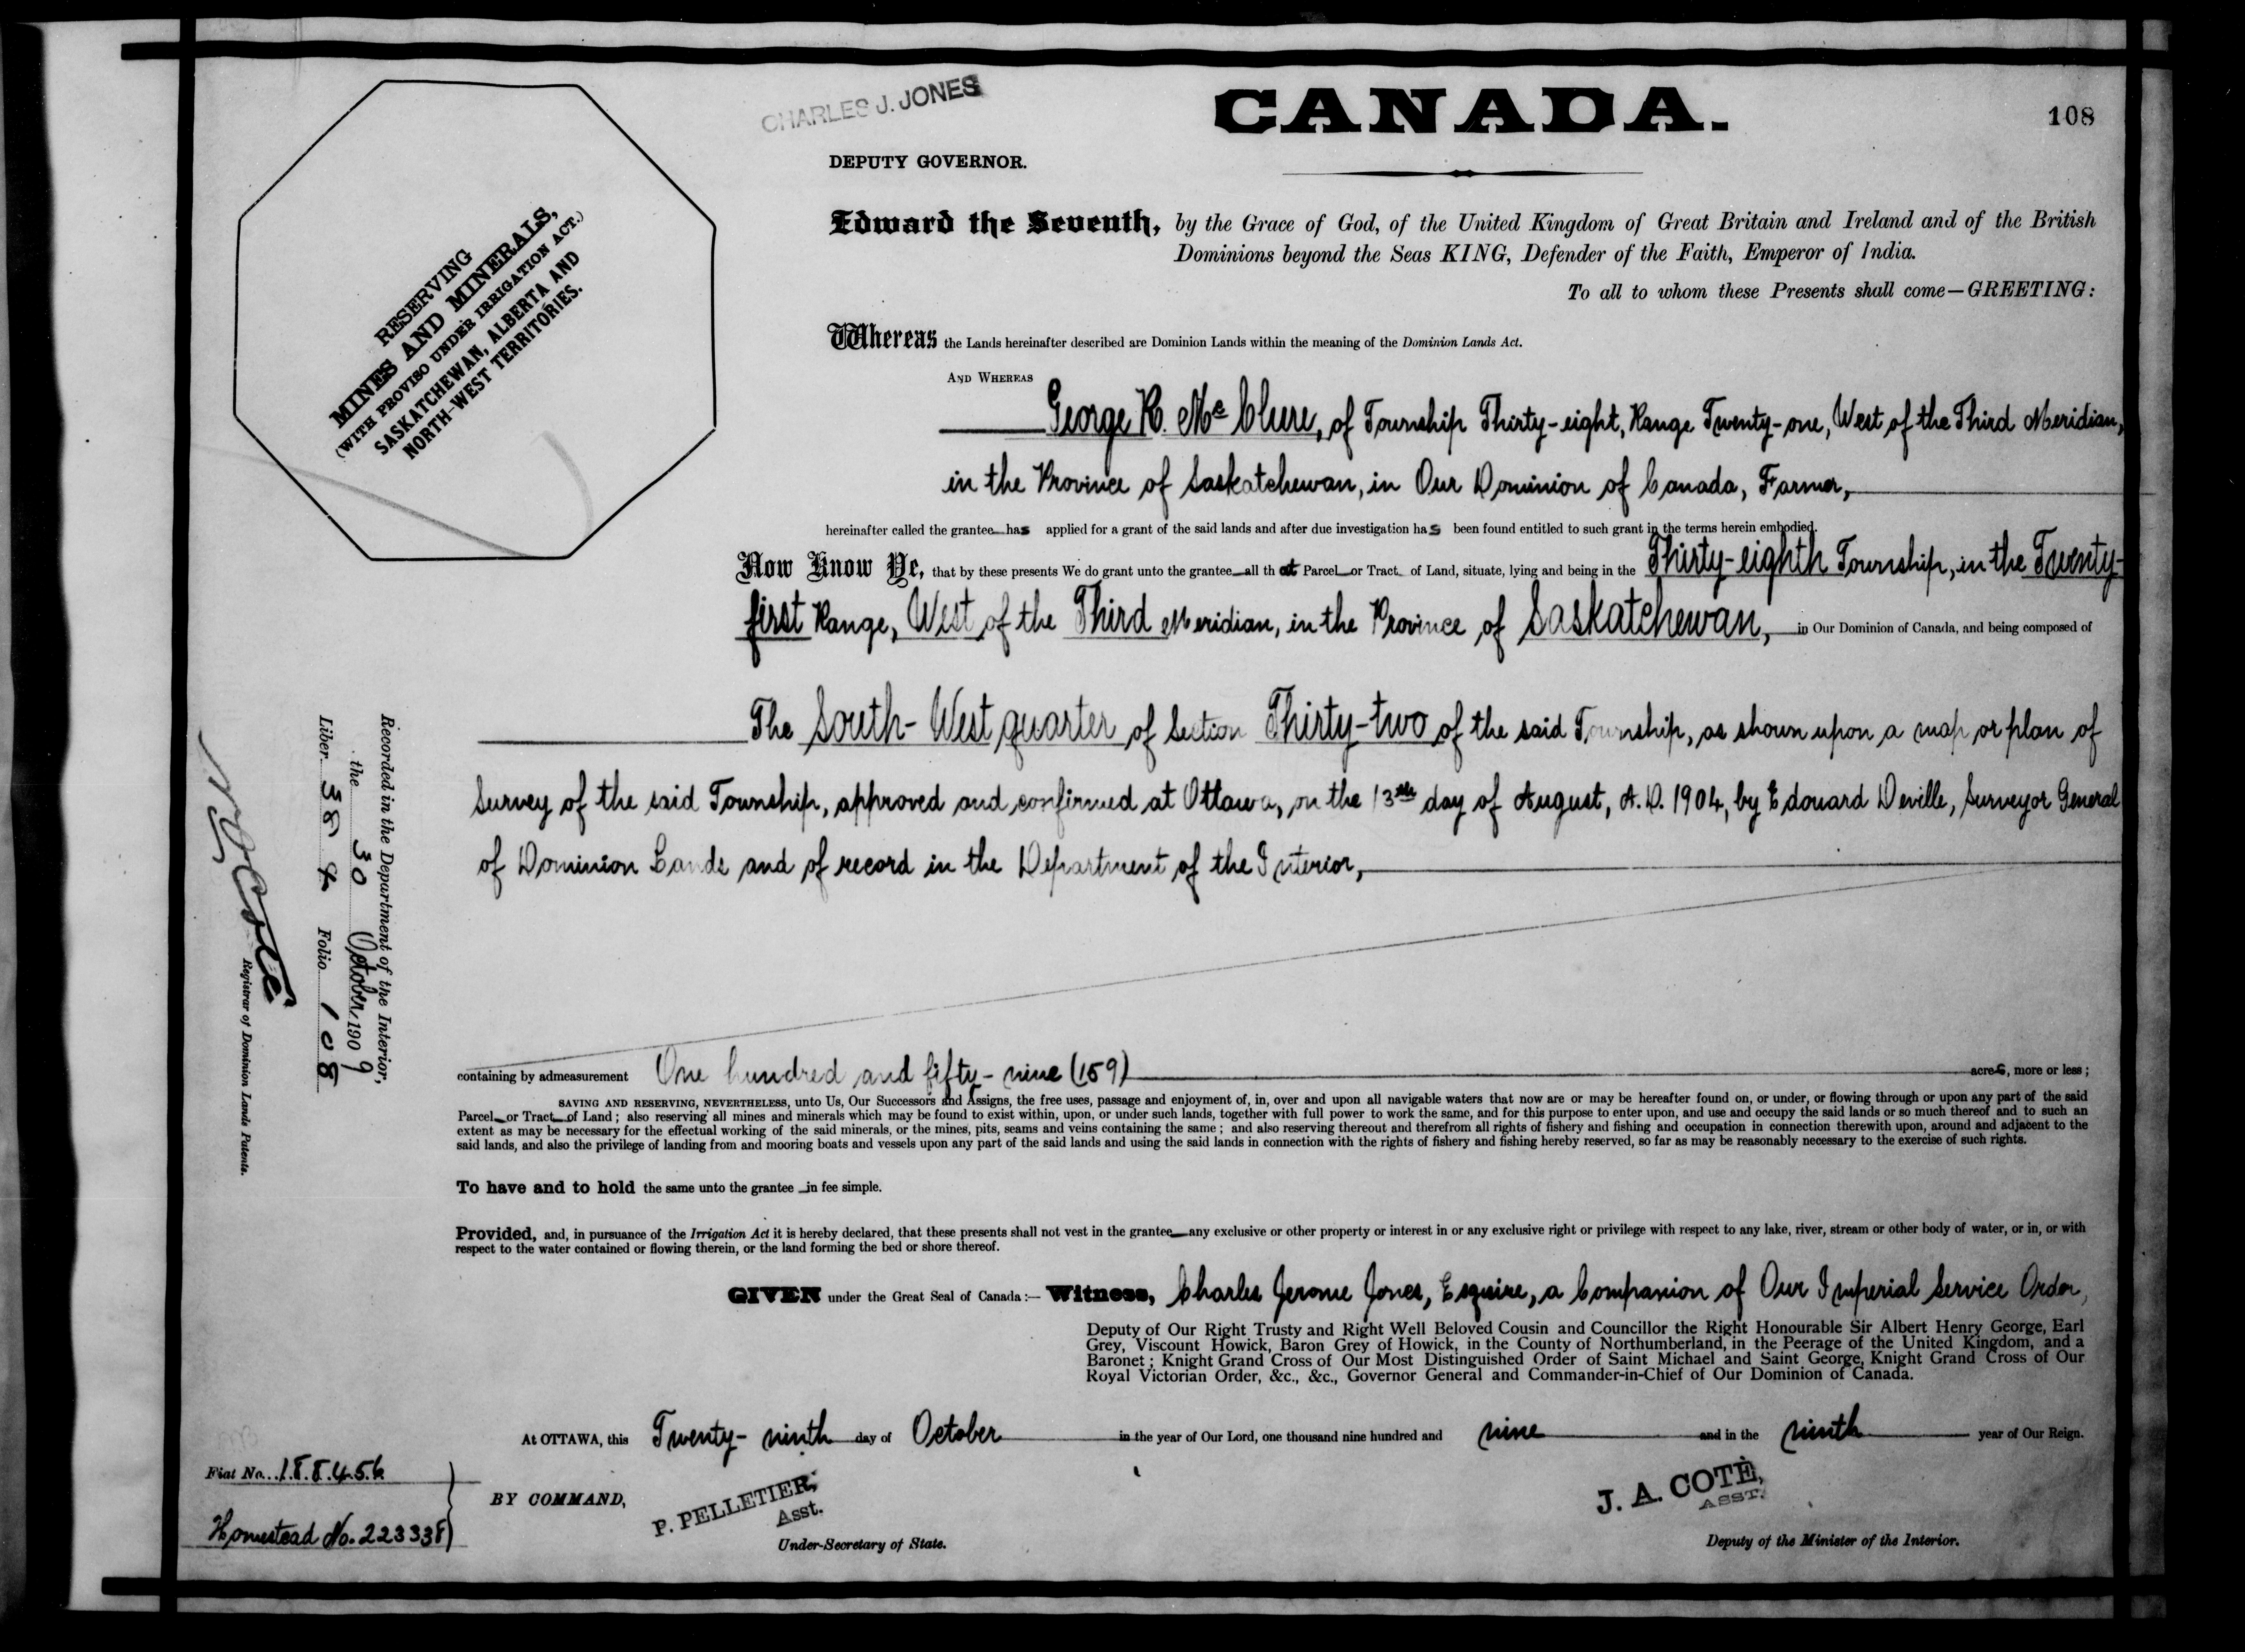 CHARLES J. JONES
CANADA.
108
DEPUTY GOVERNOR.
RESERVING
MINES AND MINERALS,
(WITH PROVISO UNDER IRRIGATION ACT.)
SASKATCHEWAN, ALBERTA AND
NORTH-WEST TERRITORIES.
Edward the Seventh, by the Grace of God, of the United Kingdom of Great Britain and Ireland and of the British
Dominions beyond the Seas KING, Defender of the Faith, Emperor of India.
To all to whom these Presents shall come—GREETING:
Whereas the Lands hereinafter described are Dominion Lands within the meaning of the Dominion Lands Act.
AND WHEREAS
George R. McClure, of Township Thirty-eight, Range Twenty-one, West of the Third Meridian,
in the Province of Saskatchewan, in Our Dominion of Canada, Farmer,
hereinafter called the grantee has applied for a grant of the said lands and after due investigation has been found entitled to such grant in the terms herein embodied.
Now Know Ye, that by these presents We do grant unto the grantee all that Parcel or Tract of Land, situate, lying and being in the Thirty-eighth Township, in the Twenty-
first Range, West of the Third Meridian, in the Province of Saskatchewan, in Our Dominion of Canada, and being composed of
The South-West quarter of Section Thirty-two of the said Township, as shown upon a map or plan of
Survey of the said Township, approved and confirmed at Ottawa, on the 13th day of August, A.D. 1904, by Edouard Deville, Surveyor General
of Dominion Lands and of record in the Department of the Interior,
Recorded in the Department of the Interior,
the 30 October, 1909
Liber 384 Folio 108
N O Coté
Registrar of Dominion Lands Patents.
containing by admeasurement One hundred and fifty-nine (159) acres, more or less;
SAVING AND RESERVING, NEVERTHELESS, unto Us, Our Successors and Assigns, the free uses, passage and enjoyment of, in, over and upon all navigable waters that now are or may be hereafter found on, or under, or flowing through or upon any part of the said
Parcel or Tract of Land; also reserving all mines and minerals which may be found to exist within, upon, or under such lands, together with full power to work the same, and for this purpose to enter upon, and use and occupy the said lands or so much thereof and to such an
extent as may be necessary for the effectual working of the said minerals, or the mines, pits, seams and veins containing the same; and also reserving thereout and therefrom all rights of fishery and fishing and occupation in connection therewith upon, around and adjacent to the
said lands, and also the privilege of landing from and mooring boats and vessels upon any part of the said lands and using the said lands in connection with the rights of fishery and fishing hereby reserved, so far as may be reasonably necessary to the exercise of such rights.
To have and to hold the same unto the grantee in fee simple.
Provided, and, in pursuance of the Irrigation Act it is hereby declared, that these presents shall not vest in the grantee any exclusive or other property or interest in or any exclusive right or privilege with respect to any lake, river, stream or other body of water, or in, or with
respect to the water contained or flowing therein, or the land forming the bed or shore thereof.
GIVEN under the Great Seal of Canada:— Witness, Charles Jerome Jones, Esquire, a Companion of Our Imperial Service Order,
Deputy of Our Right Trusty and Right Well Beloved Cousin and Councillor the Right Honourable Sir Albert Henry George, Earl
Grey, Viscount Howick, Baron Grey of Howick, in the County of Northumberland, in the Peerage of the United Kingdom, and a
Baronet; Knight Grand Cross of Our Most Distinguished Order of Saint Michael and Saint George, Knight Grand Cross of Our
Royal Victorian Order, &c., &c., Governor General and Commander-in-Chief of Our Dominion of Canada.
At OTTAWA, this Twenty-ninth day of October in the year of Our Lord, one thousand nine hundred and nine and in the ninth year of Our Reign.
Fiat No. 188456
Homestead No. 223338
BY COMMAND,
P. PELLETIER,
Asst.
Under-Secretary of State.
J. A. COTÈ,
ASST.
Deputy of the Minister of the Interior.